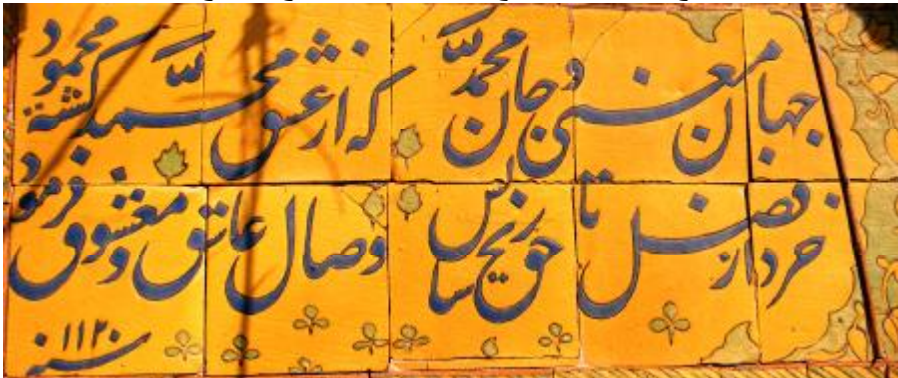 جهان معنی و جان محمد لله که از عشق محمد لله کشته محمود
خرد از فضل حق تاریخ سالش وصال عاشق و معشوق فرمود
سنه ۱۱۲۰